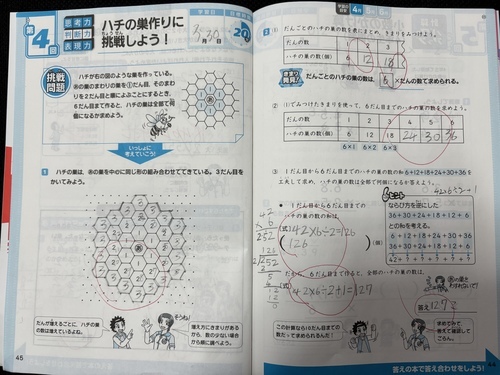 第4回
思考力
判断力
表現力
ハチの巣作りに
挑戦しよう！
学習日
3月30日
20
挑戦問題
ハチが右の図のような巣を作っている。
あの巣のまわりの巣を①だん目、そのまわ
りを2だん目と順によぶことにするとき、
6だん目まで作ると、ハチの巣は全部で何
個になるか求めよう。
いっしょに
考えていこう！
1 ハチの巣は、あの巣を中心に同じ形の組み合わせでできている。3だん目を
かいてみよう。
だんが増えるごとに、ハチの
巣は増えているよね。
そうね！
増え方にきまりがある
から、数の少ない場合
から順に調べよう。
45
2 (1) だんごとのハチの巣の数を表にまとめ、きまりをみつけよう。
だんの数 1 2 3
ハチの巣の数(個) 6 12 18
きまり発見！
だんごとのハチの巣の数は、6×だんの数で求められる。
(2) (1)でみつけたきまりを使って、6だん目までのハチの巣の数を求めよう。
だんの数 1 2 3 4 5 6
ハチの巣の数(個) 6 12 18 24 30 36
6×1 6×2 6×3
(3) 1だん目から6だん目までのハチの巣の数の和6+12+18+24+30+36を
工夫して求め、ハチの巣の数は全部で何個になるか答えよう。
42×6÷2+1
● 1だん目から6だん目までの
ハチの巣の数の和は、
(式) 42×6÷2=126
(126)(個)
ヒント
ならび方を逆にした
36+30+24+18+12+6
との和を考える。
6+12+18+24+30+36
36+30+24+18+12+6
42
×6
252
126
2)252
2
5
4
12
12
0
だから、6だん目まで作ると、全部のハチの巣の数は、
(式) 42×6÷2+1=127
あの巣を
わすれないで！
答え 127こ
この計算なら10だん目までの
数だって求められるんだ！
求め方をみて、
答えて確認して
ごらん。
答えの本で答え合わせをしよう！